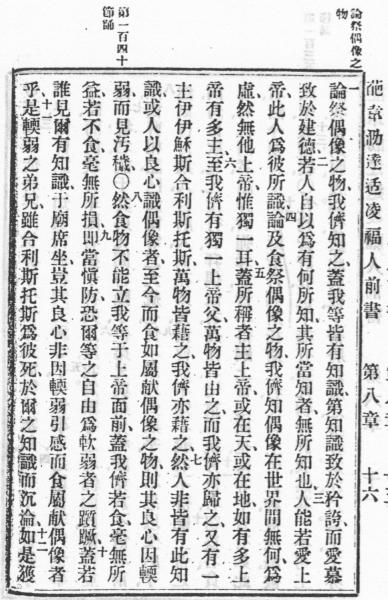 葩韋勒達适凌福人前書 第八章 十六
論祭偶像之物
第一百四十節誦
一論祭偶像之物我儕知之蓋我等皆有知識第知識致於矜誇而愛慕
致於建德二若人自以爲有何所知其所當知者無所知也三人能若愛上
帝此人爲彼所識四論及食祭偶像之物我儕知偶像在世界間無何爲
虛然無他上帝惟獨一耳五蓋所稱者主上帝或在天或在地如有多上
帝有多主六至我儕有獨一上帝父萬物皆由之而我儕亦歸之又有一
主伊伊穌斯合利斯托斯萬物皆藉之我儕亦藉之七然人非皆有此知
識或人以良心識偶像者至今而食如屬献偶像之物則其良心因輭
弱而見汚穢〇八然食物不能立我等于上帝面前蓋我儕若食毫無所
益若不食毫無所損九即當愼防恐爾等之自由爲軟弱者之躓蹶十蓋若
誰見爾有知識于廟席坐豈其良心非因輭弱引感而食屬献偶像者
乎十一是輭弱之弟兄雖合利斯托斯爲彼死於爾之知識而沉淪十二如是獲